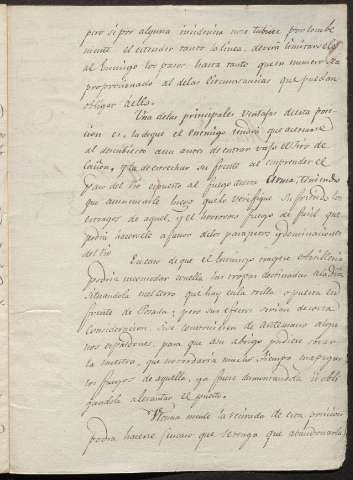 pero si por alguna incidencia no se tubiese por combe
niente el estender tanto la linea, devera limitarse
al Enemigo los pasos, hasta tanto que su numero sea
proporcionado al de las circunstancias que puedan
obligar a ello.
Una de las principales ventajas de esta posi
cion es, la de que el enemigo tendrá que acercarse
al descubierto aun antes de entrar vajo el tiro de
Cañon, y la de estrechar su frente al emprender el
paso del rio expuesto al fuego de esta Arma, teniendo
que aumentarse luego que lo verifique su frente los
estragos de aquel, y el horroroso fuego de fusil que
podra hacersele a favor de los parapetos y
del rio
En caso de que el Enemigo trajere Artilleria
podria incomodar con ella las tropas destinadas a la
situandola en el cerro que hay en la orilla opuesta en
frente de Posada; pero sus efectos serian de corta
Consideracion, si se construiesen de antemano algu
nos espaldones, para que a su abrigo pudiese obrar
la nuestra, que no tardaria mucho tiempo en apagar
los fuegos de aquella, ya fuese desmontandola u obli
gandola a levantar el puesto.
Ultima mente la retirada de esta posicion
podra hacerse (en caso que se tenga que abandonarla)